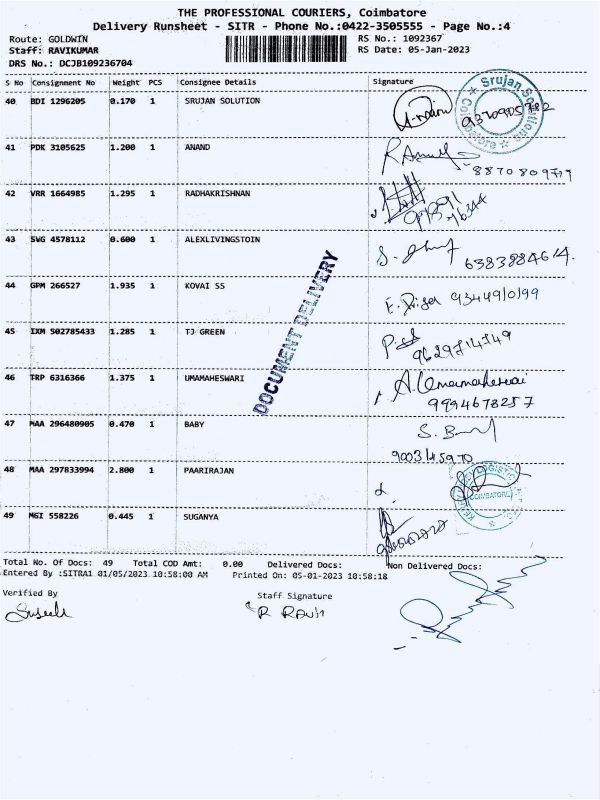 THE PROFESSIONAL COURIERS, Coimbatore
Delivery Runsheet - SITR - Phone No.:0422-3505555 - Page No.:4
Route: GOLDWIN RS No.: 1092367
Staff: RAVIKUMAR RS Date: 05-Jan-2023
DRS No.: DCJB109236704
S No Consignment No Weight PCS Consignee Details Signature
40 BDI 1296205 0.170 1 SRUJAN SOLUTION
Srujan Solutions Coimbatore
41 PDK 3105625 1.200 1 ANAND
8870809779
42 VRR 1664985 1.295 1 RADHAKRISHNAN
43 SWG 4578112 0.600 1 ALEXLIVINGSTOIN
6383884614.
44 GPM 266527 1.935 1 KOVAI SS
E. Priya 9344910199
DOCUMENT DELIVERY
45 IXM 502785433 1.285 1 TJ GREEN
9629714749
46 TRP 6316366 1.375 1 UMAMAHESWARI
A. Umamaheswari
9994678257
47 MAA 296480905 0.470 1 BABY
9003145970
48 MAA 297833994 2.800 1 PAARIRAJAN
COIMBATORE
49 MGI 558226 0.445 1 SUGANYA
Total No. Of Docs: 49 Total COD Amt: 0.00 Delivered Docs: Non Delivered Docs:
Entered By :SITRA1 01/05/2023 10:58:00 AM Printed On: 05-01-2023 10:58:18
Verified By Staff Signature
R Ravi